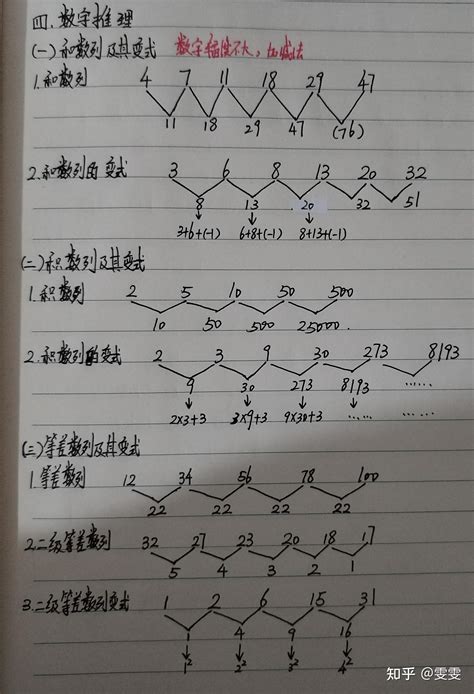 四. 数字推理
(一)和数列及其变式 数字幅度不大,加减法
1.和数列 4 7 11 18 29 47
11 18 29 47 (76)
2.和数列的变式 3 6 8 13 20 32
8 13 20 32 51
3+6+(-1) 6+8+(-1) 8+13+(-1)
(二)积数列及其变式
1.积数列 2 5 10 50 500
10 50 500 25000.
2.积数列的变式 2 3 9 30 273 8193
9 30 273 8193 ......
2×3+3 3×9+3 9×30+3 ...... ......
(三)等差数列及其变式
1.等差数列 12 34 56 78 100
22 22 22 22
2.二级等差数列 32 27 23 20 18 17
5 4 3 2 1
3.二级等差数列变式 1 2 6 15 31
1 4 9 16
1² 2² 3² 4²
知乎 @雯雯